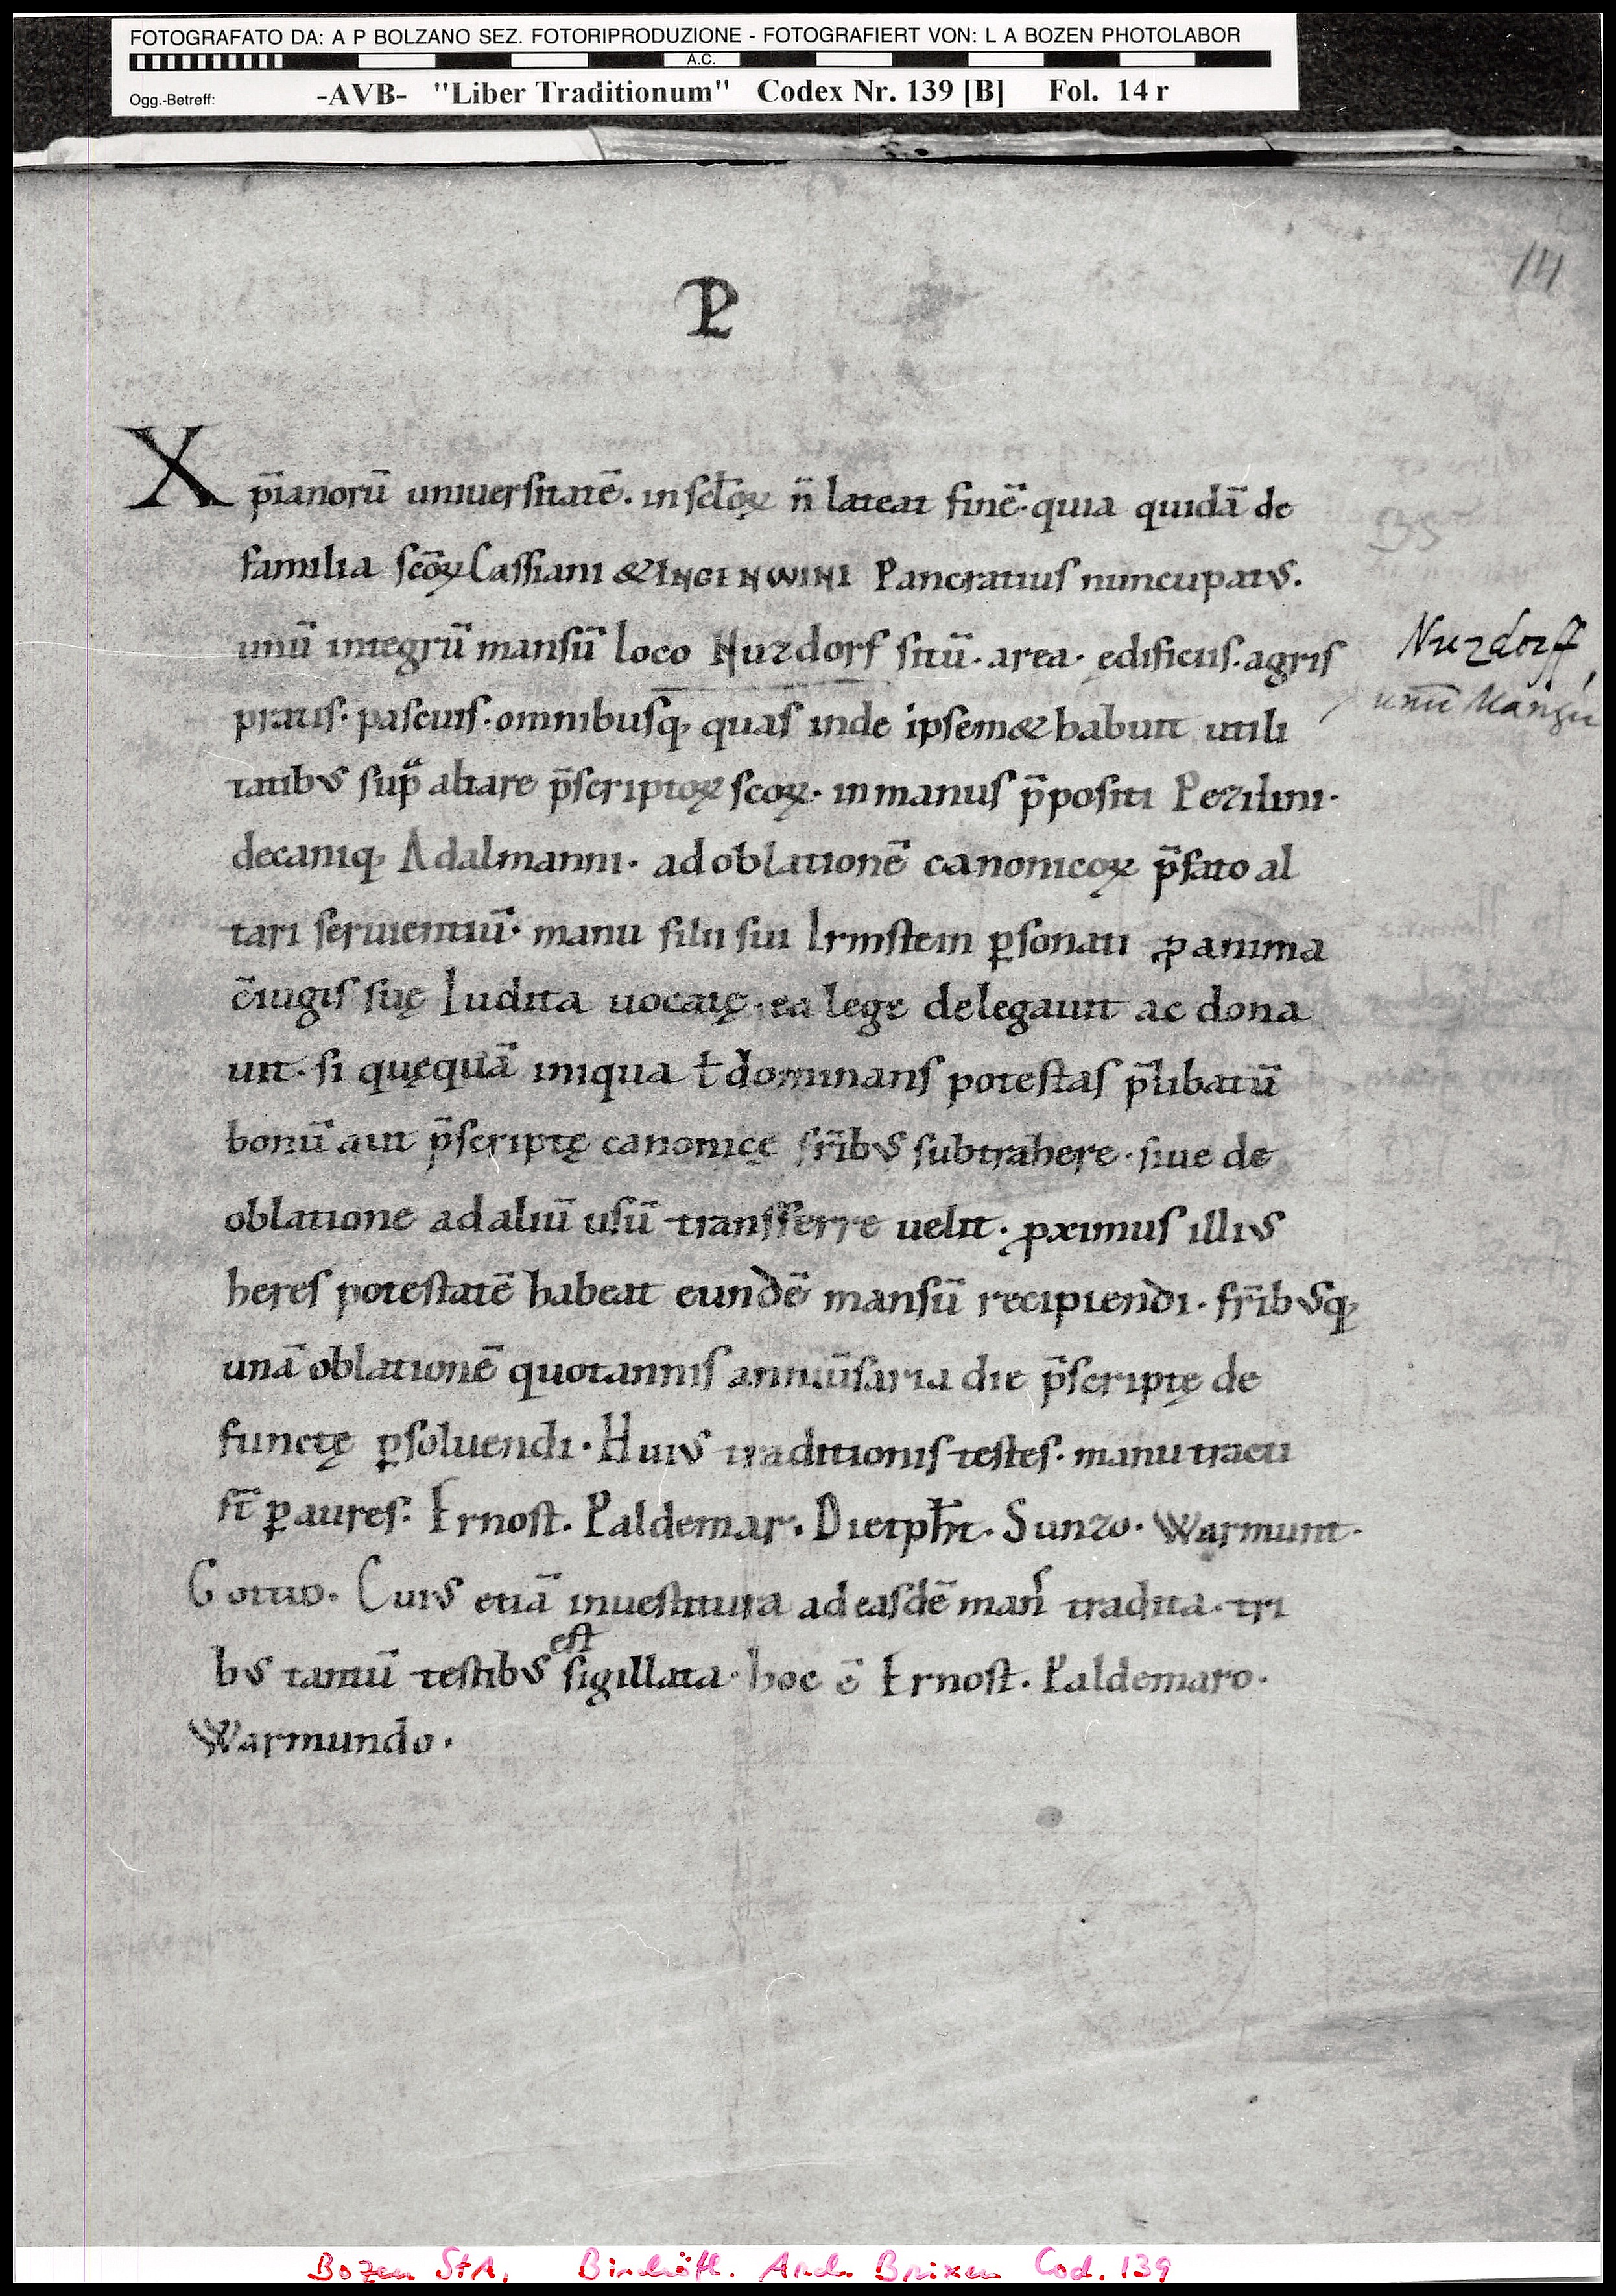 FOTOGRAFATO DA: A P BOLZANO SEZ. FOTORIPRODUZIONE - FOTOGRAFIERT VON: L A BOZEN PHOTOLABOR
A.C.
Ogg.-Betreff: -AVB- "Liber Traditionum" Codex Nr. 139 [B] Fol. 14 r
14
P
Xp̄ianorū uniuersitatē. in sc̄loꝝ n̄ lateat finē. quia quidā de
familia sc̄oꝝ Cassiani & INGINWINI Pancratius nuncupatus.
unū integrū mansū loco Nuzdorf sitū. area. ędificiis. agris
Nuzdorff,
unū Mansū
pratis. pascuis. omnibusq; quas inde ipsem& habuit utili
tatibus sup̄ altare p̄scriptoꝝ scoꝝ. in manus p̄positi Pezilini.
decaniq; Adalmanni. ad oblationē canonicoꝝ p̄fato al
tari seruientiū. manu filii sui Irinstein ꝑsonati ꝓ anima
c̄iugis suę Iudita uocatę. ea lege delegauit ac dona
uit. si quęquā iniqua ł dominans potestas p̄libatū
bonū aut p̄scriptę canonicę fr̄ibus subtrahere. siue de
oblatione ad aliū usū transferre uelit. ꝓximus illius
heres potestatē habeat eundē mansū recipiendi. fr̄ibusq;
unā oblationē quotannis anniūsaria die p̄scriptę de
functę ꝑsoluendi. Huius traditionis testes. manu tracti
st̄ ꝑ aures. Ernost. Paldemar. Dietpħt. Sunzo. Warmunt.
Gottio. Cuius etiā inuestitura ad easdē man⁹ tradita. tri
bus tantū testibus est sigillata. hoc ē Ernost. Paldemaro.
Warmundo.
Bozen StA, Bischöfl. Arch. Brixen Cod. 139